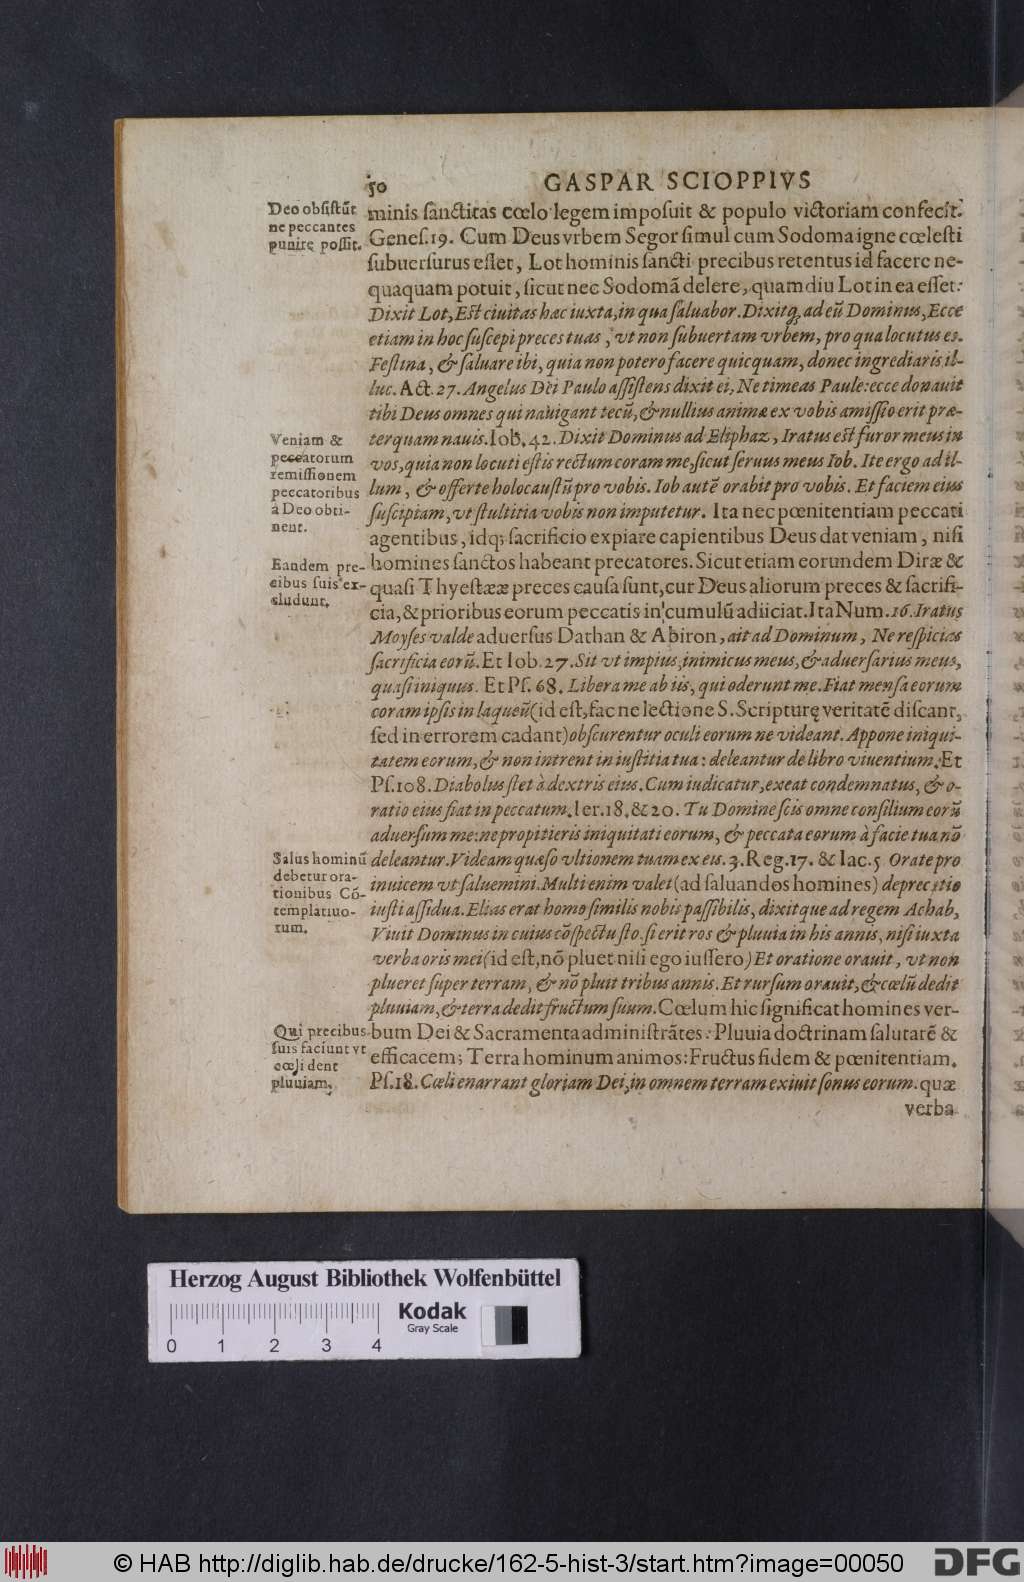 50 GASPAR SCIOPPIVS
Deo obsistūt
ne peccantes
punire possit.
minis sanctitas cœlo legem imposuit & populo victoriam confecit.
Genes. 19. Cum Deus vrbem Segor simul cum Sodoma igne cœlesti
subuersurus esset, Lot hominis sancti precibus retentus id facere ne-
quaquam potuit, sicut nec Sodomā delere, quam diu Lot in ea esset:
Dixit Lot, Est ciuitas hac iuxta, in qua saluabor. Dixitq; ad eū Dominus, Ecce
etiam in hoc suscepi preces tuas, vt non subuertam vrbem, pro qua locutus es.
Festina, & saluare ibi, quia non potero facere quicquam, donec ingrediaris il-
luc. Act. 27. Angelus Dei Paulo assistens dixit ei, Ne timeas Paule: ecce donauit
tibi Deus omnes qui nauigant tecū, & nullius animæ ex vobis amissio erit præ-
Veniam &
peccatorum
remissionem
peccatoribus
à Deo obti-
nent.
terquam nauis. Iob. 42. Dixit Dominus ad Eliphaz, Iratus est furor meus in
vos, quia non locuti estis rectum coram me, sicut seruus meus Iob. Ite ergo ad il-
lum, & offerte holocaustū pro vobis. Iob autē orabit pro vobis. Et faciem eius
suscipiam, vt stultitia vobis non imputetur. Ita nec pœnitentiam peccati
agentibus, idq; sacrificio expiare capientibus Deus dat veniam, nisi
Eandem pre-
cibus suis ex-
cludunt.
homines sanctos habeant precatores. Sicut etiam eorundem Diræ &
quasi Thyestææ preces causa sunt, cur Deus aliorum preces & sacrifi-
cia, & prioribus eorum peccatis in cumulū adiiciat. Ita Num. 16. Iratus
Moyses valde aduersus Dathan & Abiron, ait ad Dominum, Ne respicias
sacrificia eorū. Et Iob. 27. Sit vt impius inimicus meus, & aduersarius meus,
quasi iniquus. Et Ps. 68. Libera me ab iis, qui oderunt me. Fiat mensa eorum
coram ipsis in laqueū (id est, fac ne lectione S. Scripturę veritatē discant,
sed in errorem cadant) obscurentur oculi eorum ne videant. Appone iniqui-
tatem eorum, & non intrent in iustitia tua: deleantur de libro viuentium. Et
Ps. 108. Diabolus stet à dextris eius. Cum iudicatur, exeat condemnatus, & o-
ratio eius fiat in peccatum. Ier. 18. & 20. Tu Domine scis omne consilium eorū
aduersum me: ne propitieris iniquitati eorum, & peccata eorum à facie tua nō
Salus hominū
debetur ora-
tionibus Cō-
templatiuo-
rum.
deleantur. Videam quæso vltionem tuam ex eis. 3. Reg. 17. & Iac. 5 Orate pro
inuicem vt saluemini. Multi enim valet (ad saluandos homines) deprecatio
iusti assidua. Elias erat homo similis nobis passibilis, dixitque ad regem Achab,
Viuit Dominus in cuius cōspectu sto. si erit ros & pluuia in his annis, nisi iuxta
verba oris mei (id est, nō pluet nisi ego iussero) Et oratione orauit, vt non
plueret super terram, & nō pluit tribus annis. Et rursum orauit, & cœlū dedit
pluuiam, & terra dedit fructum suum. Cœlum hic significat homines ver-
Qui precibus
suis faciunt vt
cœli dent
pluuiam.
bum Dei & Sacramenta administrātes: Pluuia doctrinam salutarē &
efficacem; Terra hominum animos: Fructus fidem & pœnitentiam.
Ps. 18. Cœli enarrant gloriam Dei, in omnem terram exiuit sonus eorum. quæ
verba
Herzog August Bibliothek Wolfenbüttel
0 1 2 3 4
Kodak
Gray Scale
© HAB http://diglib.hab.de/drucke/162-5-hist-3/start.htm?image=00050
DFG